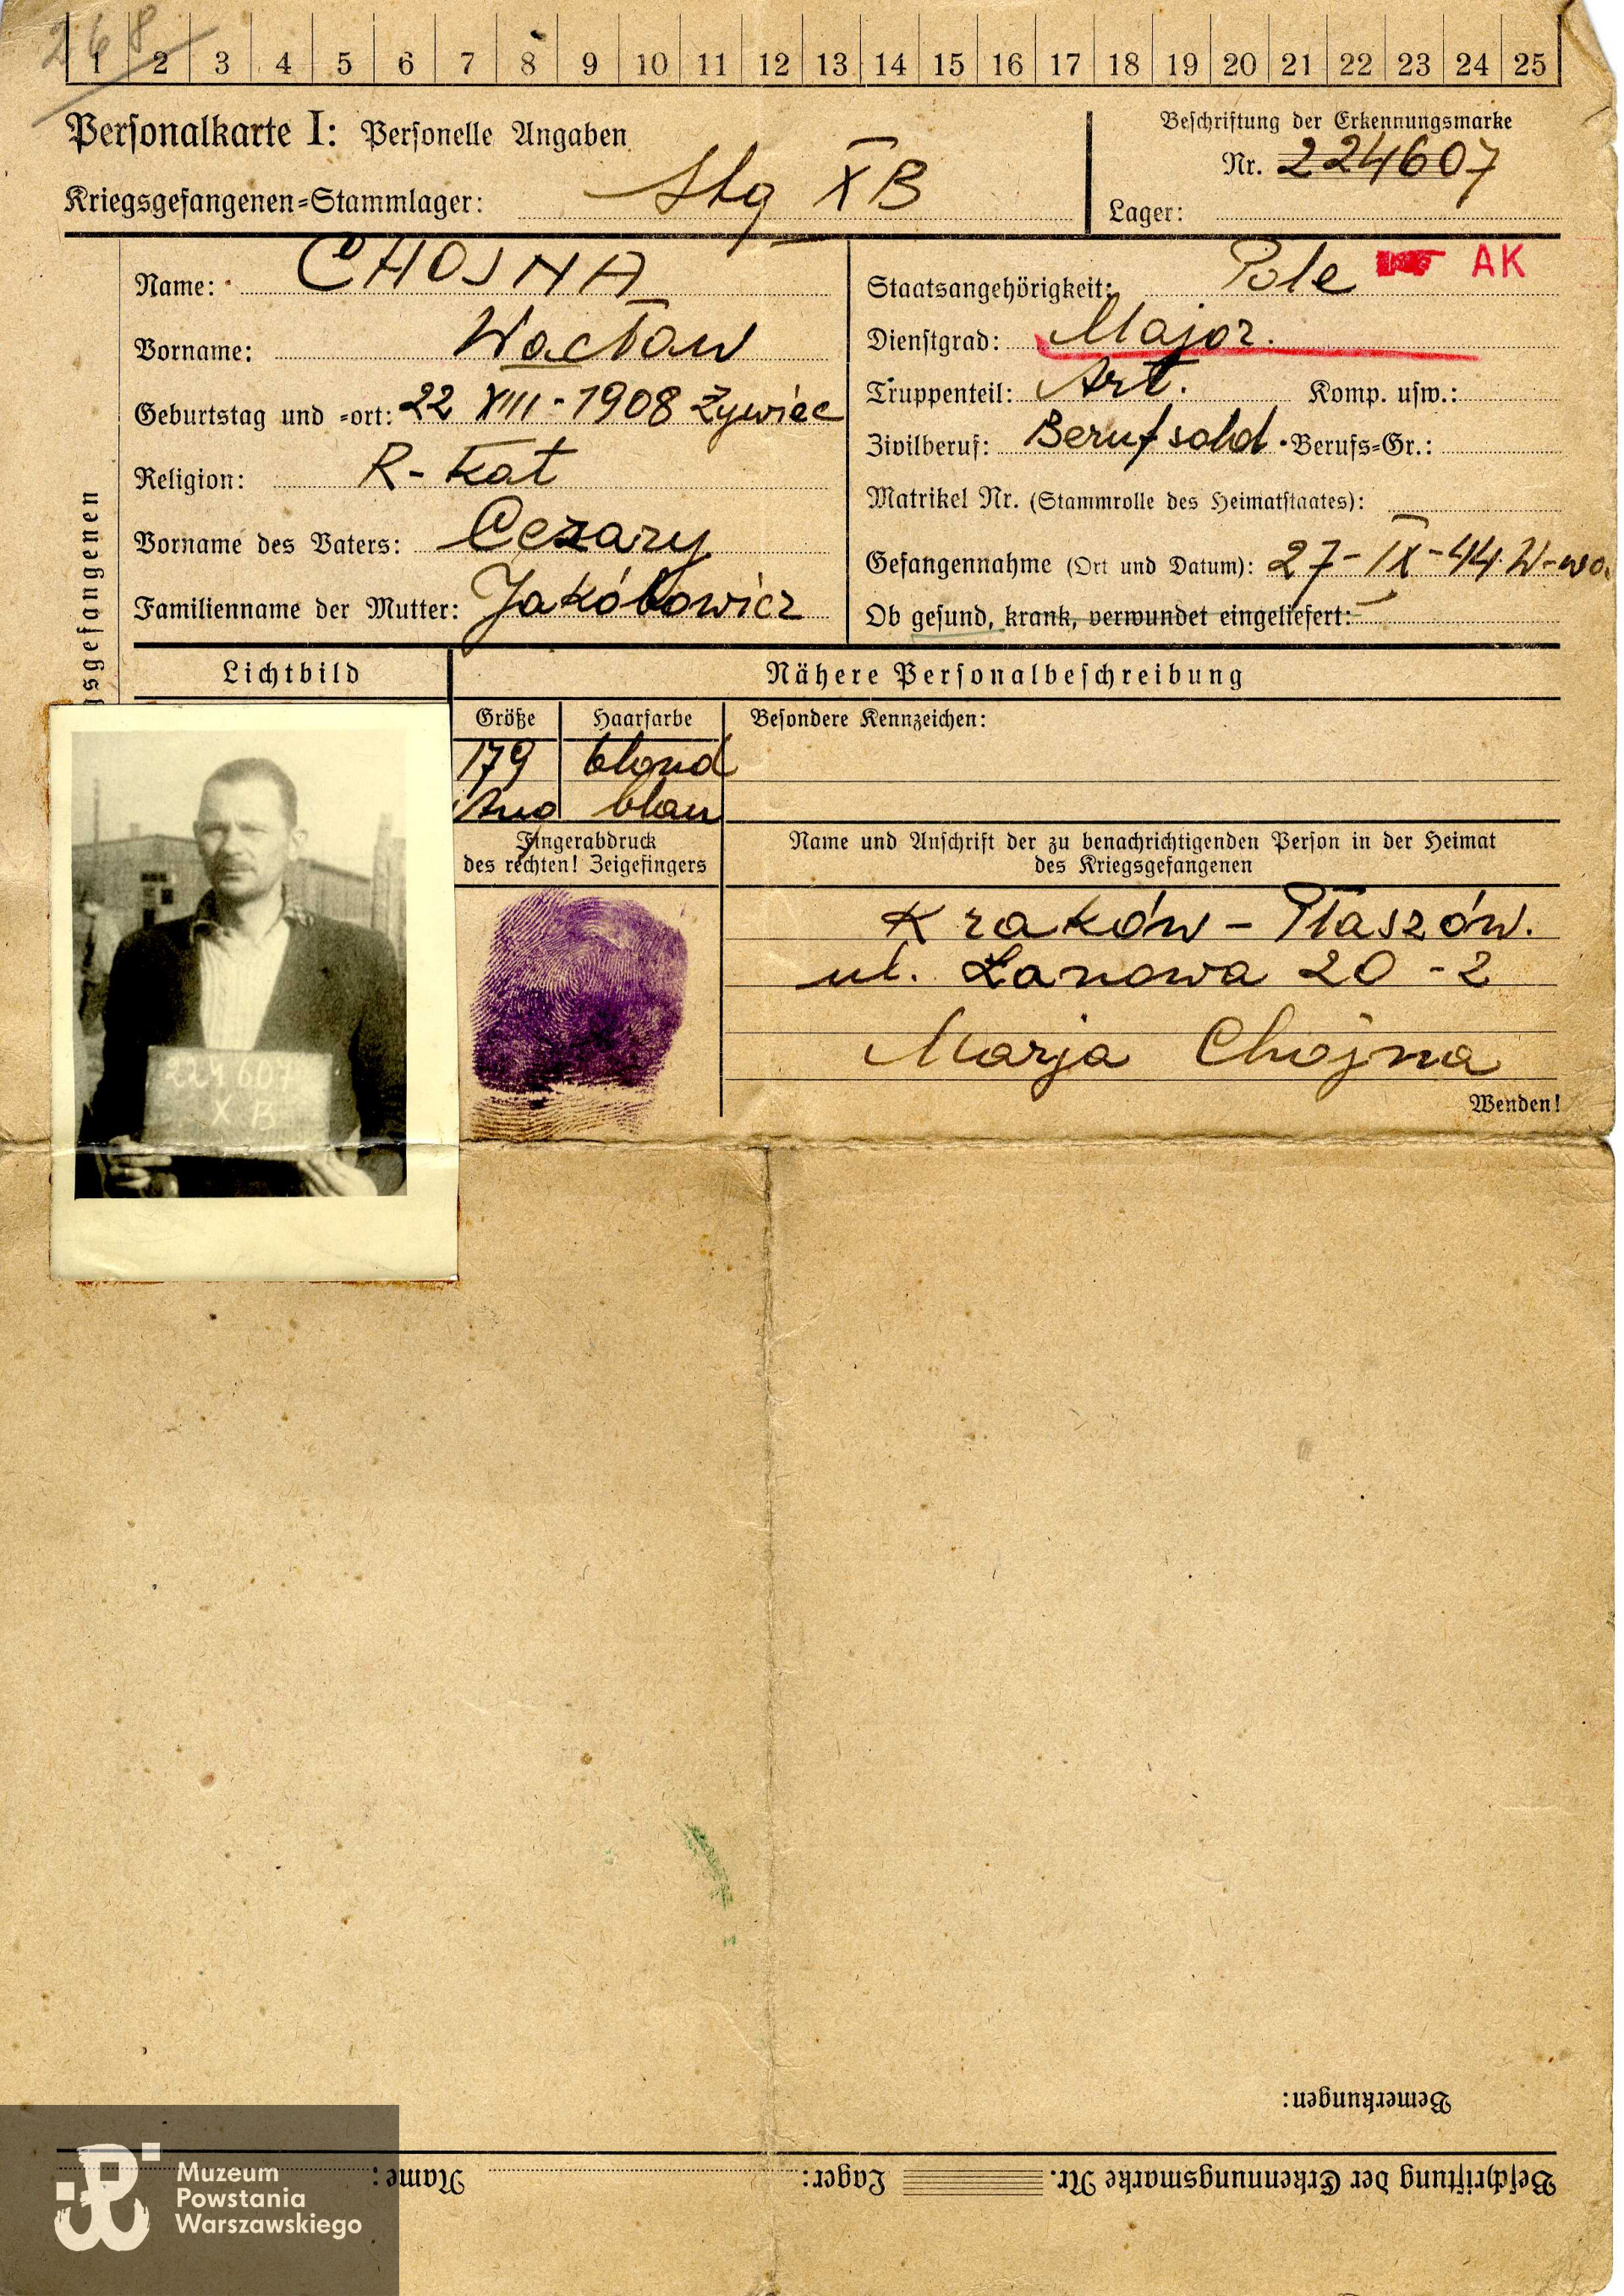 268
1 2 3 4 5 6 7 8 9 10 11 12 13 14 15 16 17 18 19 20 21 22 23 24 25
Personalkarte I: Personelle Angaben
Kriegsgefangenen=Stammlager: Stlg X B
Beschriftung der Erkennungsmarke
Nr. 224607
Lager:
Name: CHOJNA
Vorname: Wacław
Geburtstag und =ort: 22 XIII - 1908 Żywiec
Religion: R-kat
Vorname des Vaters: Cezary
Familienname der Mutter: Jakóbowicz
Staatsangehörigkeit: Pole AK
Dienstgrad: Major.
Truppenteil: Art. Komp. usw.:
Zivilberuf: Berufsold. Berufs=Gr.:
Matrikel Nr. (Stammrolle des Heimatstaates):
Gefangennahme (Ort und Datum): 27-IX-44. W-wa
Ob gesund, krank, verwundet eingeliefert:
sgefangenen
Lichtbild
Nähere Personalbeschreibung
Größe Haarfarbe Besondere Kennzeichen:
179 blond
blau
Fingerabdruck
des rechten! Zeigefingers
Name und Anschrift der zu benachrichtigenden Person in der Heimat
des Kriegsgefangenen
Kraków - Płaszów.
ul. Łanowa 20 - 2
Marja Chojna
Wenden!
224607
X B
Bemerkungen:
Beschriftung der Erkennungsmarke Nr. Lager: Name:
Muzeum
Powstania
Warszawskiego